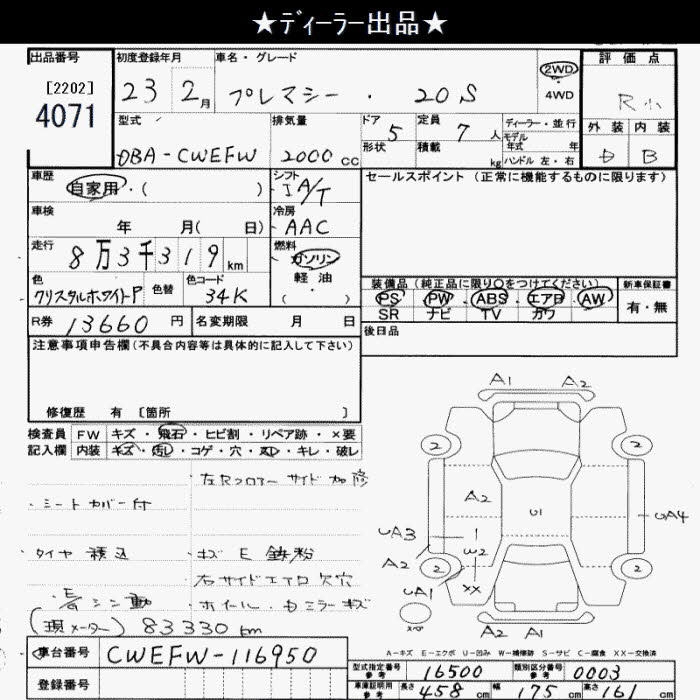 ★ディーラー出品★
出品番号
[2202]
4071
初度登録年月
23 2月
車名・グレード
プレマシー ・ 20S
2WD
4WD
評価点
R
外装 内装
B
型式
DBA-CWEFW
排気量
2000 cc
ドア 5
形状
定員 7 人
積載 kg
ディーラー・並行
モデル年式 年
ハンドル 左・右
車歴
自家用・( )
シフト
IA/T
車検
年 月( 日)
冷房
AAC
走行
8万3千319km
燃料
ガソリン
軽油
( ・ )
色
クリスタルホワイトP
色替
色コード
34K
R券 13660 円
名変期限 月 日
セールスポイント(正常に機能するものに限ります)
装備品(純正品に限り○をつけてください)
PS PW ABS エアB AW
SR ナビ TV カワ
新車保証書
有・無
後日品
注意事項申告欄(不具合内容等は具体的に記入して下さい)
修復歴 有 [箇所 ]
検査員記入欄
FW キズ・飛石・ヒビ割・リペア跡・×要
内装 キズ・汚レ・コゲ・穴・スレ・キレ・破レ
左Rフロアー サイド 加修
・シートカバー付
・タイヤ積込
・キズ E 鉄粉
右サイドエアロ 欠穴
・エンジン動
・ホイール・ミラーキズ
(現メーター) 83330km
A1 A2
2 2
A2
U1
UA3
1
W2
UA4
A2
2 2
UA1
XX
A2 A1
A-キズ E-エクボ U-凹み W-補修跡 S-サビ C-腐食 XX-交換済
車台番号 CWEFW-116950
登録番号
型式指定番号 参考 16500
類別区分番号 参考 0003
車庫証明用 参考 長さ 458 cm 幅 175 cm 高さ 161 cm